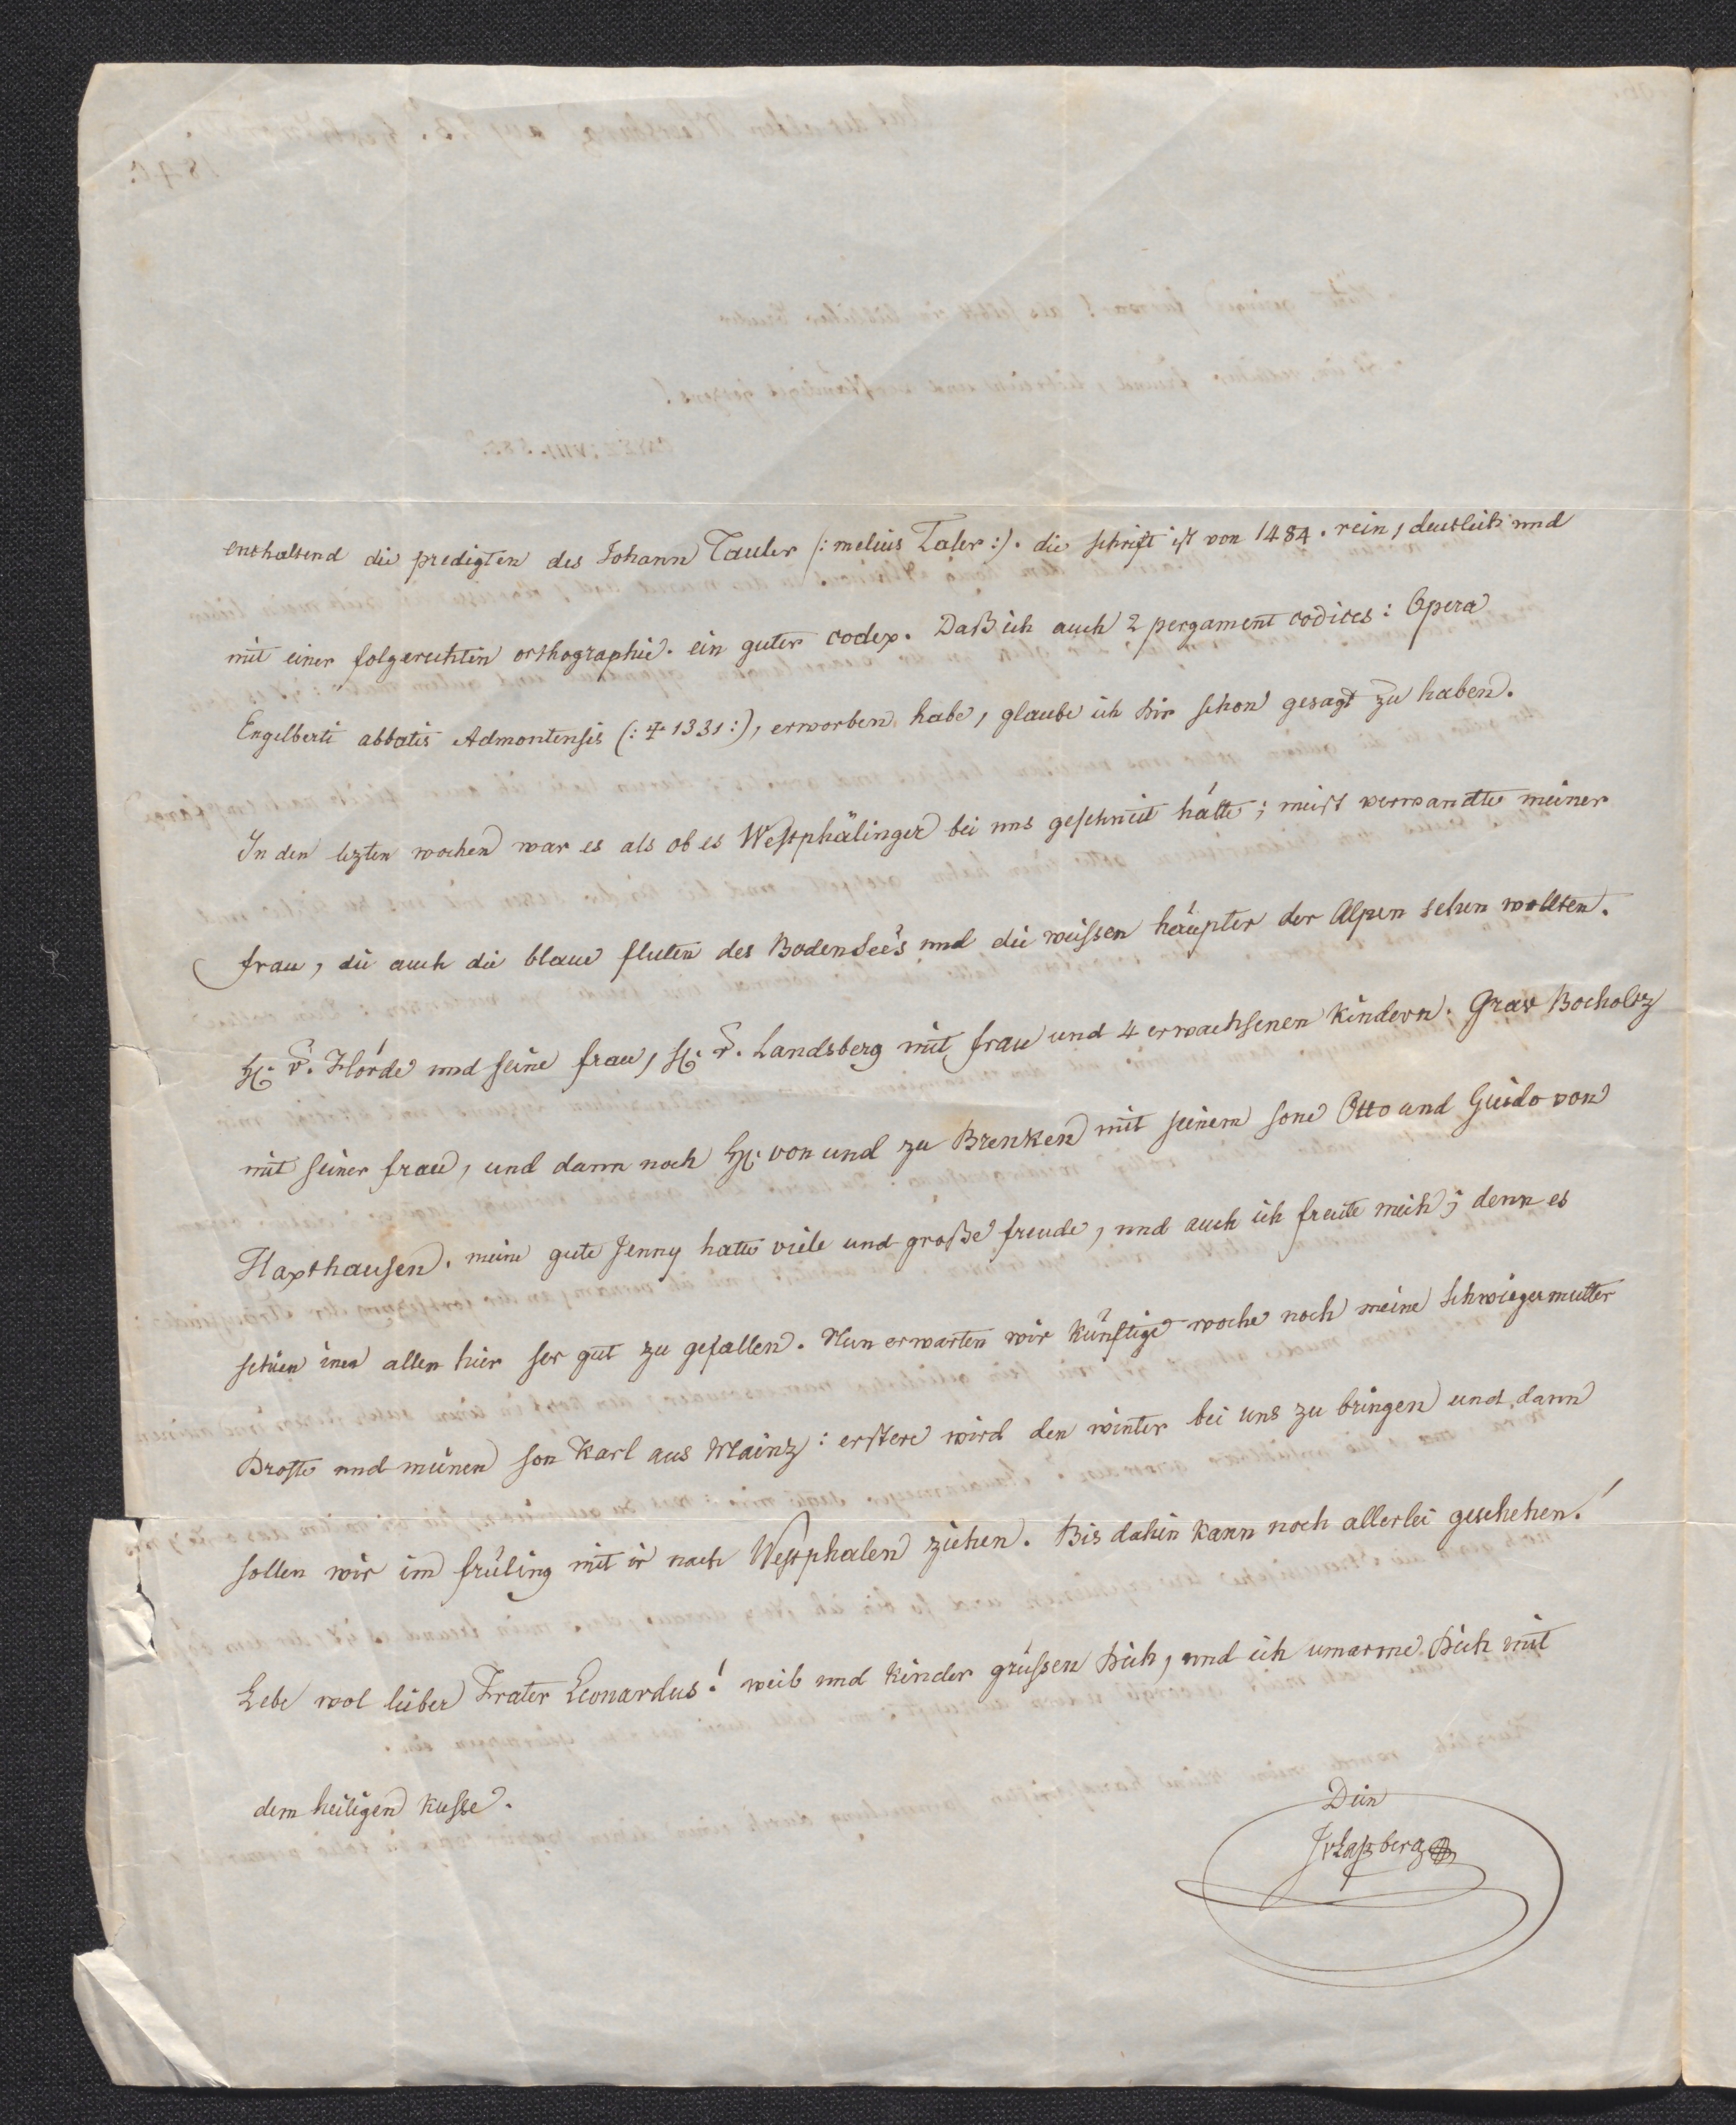 enthaltend die predigten des Johann Tauler (: melius Taler :). die schrift ist von 1484. rein, deutlich und
mit einer folgerechten orthographie. ein guter codex. Daß ich auch 2 pergament codices: Opera
Engelberti abbatis Admontensis (: † 1331 :), erworben habe, glaube ich Dir schon gesagt zu haben.
In den lezten wochen war es als ob es Westphälinger bei uns geschneit hätte; meist verwandte meiner
frau, die auch die blaue fluten des Bodensee's und die weissen häupter der Alpen sehen wollten.
H. v. Hörde und seine frau, H. v. Landsberg mit frau und 4 erwachsenen kindern. Grav Bocholtz
mit seiner frau, und dann noch H. von und zu Brenken mit seinem sone Otto und Guido von
Haxthausen. meine gute Jenny hatte viele und große freude, und auch ich freute mich; denn es
schien inen allen hier ser gut zu gefallen. Nun erwarten wir künftige woche noch meine Schwiegermutter
Droste und meinen son Karl aus Mainz: erstere wird den winter bei uns zu bringen und dann
sollen wir im früling mit ir nach Westphalen ziehen. Bis dahin kann noch allerlei geschehen!
Lebe wol lieber Frater Leonardus! weib und kinder grüssen Dich, und ich umarme Dich mit
dem heiligen kusse.
Dein
JvLaßberg